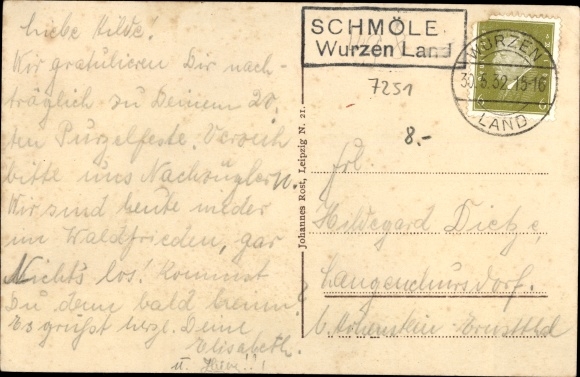 Liebe Hilde!
Wir gratulieren Dir nach-
träglich zu Deinem 20.
ten Purzelfeste. Verzeih
bitte uns Nachzüglern.
Wir sind heute wieder
im Waldfrieden, gar
Nichts los! Kommst
Du denn bald heim?
Es grüßt herzl. Deine
Elisabeth.
u.
SCHMÖLE
Wurzen Land
WURZEN
30.6.32.15-16
LAND
6 6
7251
8.-
Johannes Rost, Leipzig N. 21.
Frl.
Hildegard Dietze,
Langenchursdorf.
b. Hohenstein Ernstthl